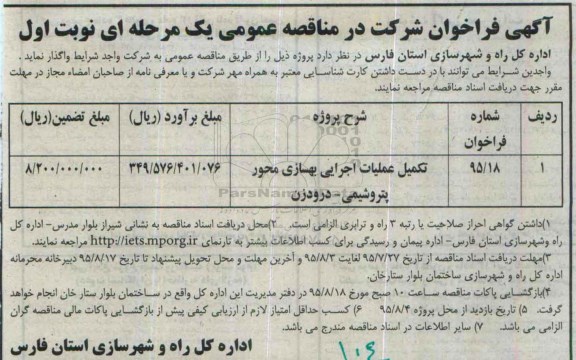 آگهی فراخوان شرکت در مناقصه عمومی یک مرحله ای نوبت اول
اداره کل راه و شهرسازی استان فارس در نظر دارد پروژه ذیل را از طریق مناقصه عمومی به شرکت واجد شرایط واگذار نماید .
واجدین شرایط می توانند با در دست داشتن کارت شناسایی معتبر به همراه مهر شرکت و یا معرفی نامه از صاحبان امضاء مجاز در مهلت
مقرر جهت دریافت اسناد مناقصه مراجعه نمایند.
ردیف شماره فراخوان شرح پروژه مبلغ برآورد (ریال) مبلغ تضمین(ریال)
۱ ۹۵/۱۸ تکمیل عملیات اجرایی بهسازی محور پتروشیمی- درودزن ۳۴۹/۵۷۶/۴۰۱/۰۷۶ ۸/۲۰۰/۰۰۰/۰۰۰
۱)داشتن گواهی احراز صلاحیت با رتبه ۳ راه و ترابری الزامی است. ۲)محل دریافت اسناد مناقصه به نشانی شیراز بلوار مدرس- اداره کل
راه وشهرسازی استان فارس- اداره پیمان و رسیدگی برای کسب اطلاعات بیشتر به تارنمای http://iets.mporg.ir مراجعه نمایند.
۳)مهلت دریافت اسناد مناقصه از تاریخ ۹۵/۷/۲۷ لغایت ۹۵/۸/۳ و آخرین مهلت و محل تحویل پیشنهاد تا تاریخ ۹۵/۸/۱۷ دبیرخانه محرمانه
اداره کل راه و شهرسازی ساختمان بلوار ستارخان.
۴)بازگشایی پاکات مناقصه ساعت ۱۰ صبح مورخ ۹۵/۸/۱۸ در دفتر مدیریت این اداره کل واقع در ساختمان بلوار ستار خان انجام خواهد
گرفت. ۵) تاریخ بازدید از محل پروژه ۹۵/۸/۴ ۶) کسب حداقل امتیاز لازم از ارزیابی کیفی پیش از بازگشایی پاکات مالی مناقصه گران
الزامی می باشد. ۷) سایر اطلاعات در اسناد مناقصه مندرج می باشد.
اداره کل راه و شهرسازی استان فارس